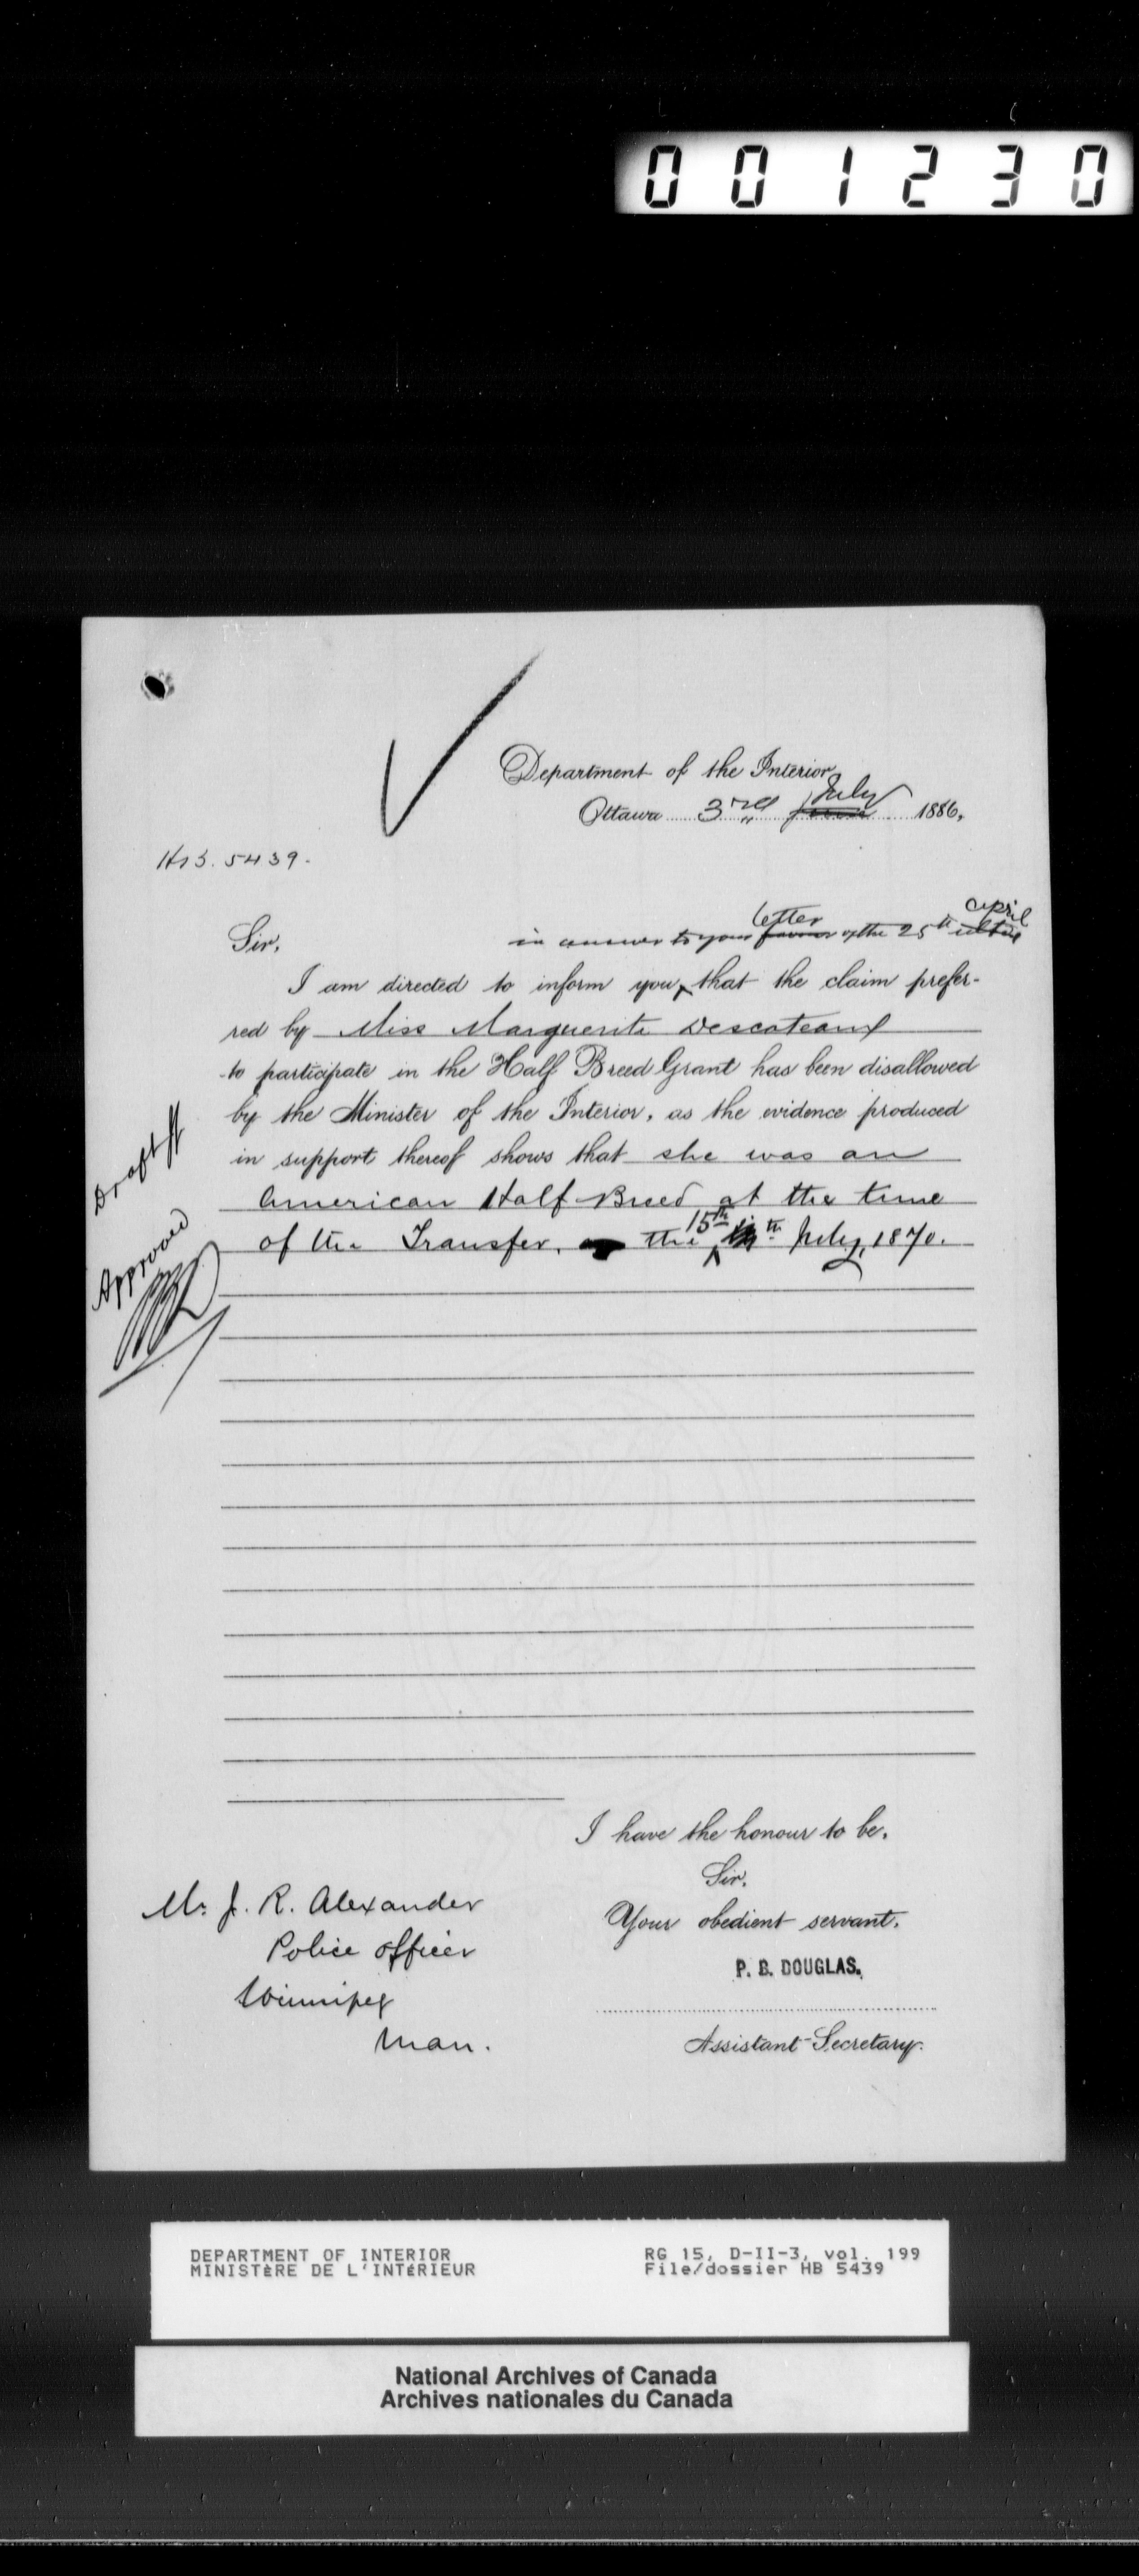 001230
Department of the Interior
Ottawa 3rd June July 1886.
HB. 5439.
Sir,
in answer to your favour letter of the 25th ultimo April
I am directed to inform you, that the claim prefer-
red by Miss Marguerite Descoteaux
to participate in the Half Breed Grant has been disallowed
by the Minister of the Interior, as the evidence produced
in support thereof shows that she was an
American Half-Breed at the time
of the Transfer, the 15th th July, 1870.
Draft
Approved
I have the honour to be,
Sir,
Your obedient servant,
P. B. DOUGLAS.
Assistant-Secretary.
Mr. J. R. Alexander
Police Officer
Winnipeg
Man.
DEPARTMENT OF INTERIOR
MINISTÈRE DE L'INTÉRIEUR
RG 15, D-II-3, vol. 199
File/dossier HB 5439
National Archives of Canada
Archives nationales du Canada